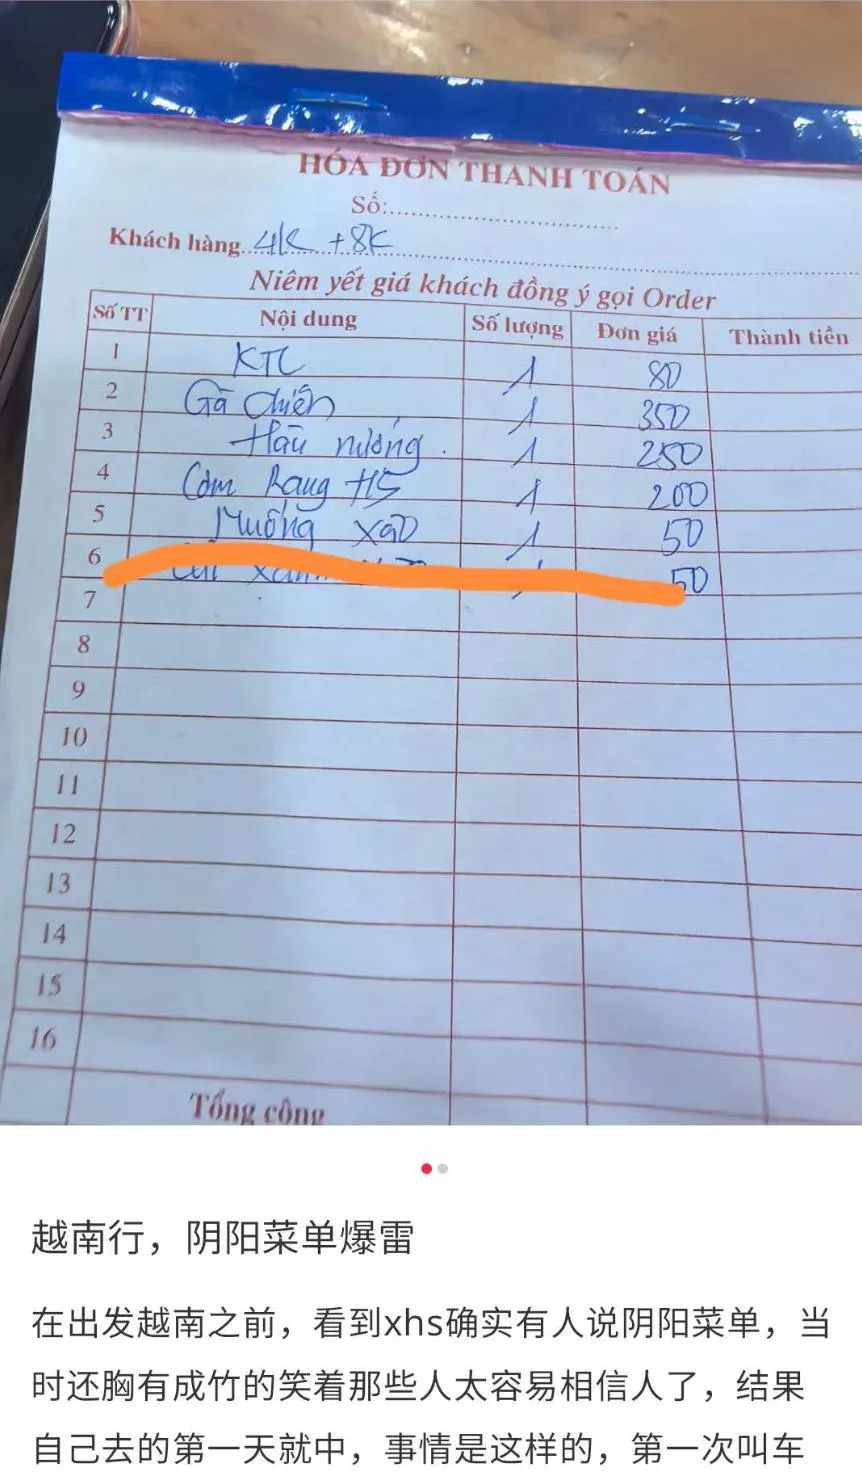 HÓA ĐƠN THANH TOÁN
Số:
Khách hàng 4K +8K
Niêm yết giá khách đồng ý gọi Order
Số TT Nội dung Số lượng Đơn giá Thành tiền
1 KTC 1 80
2 Gà chiên 1 350
3 Hàu nướng 1 250
4 Cơm Rang HS 1 200
5 Muống xào 1 50
6 xanh 50
7
8
9
10
11
12
13
14
15
16
Tổng cộng
越南行，阴阳菜单爆雷
在出发越南之前，看到xhs确实有人说阴阳菜单，当
时还胸有成竹的笑着那些人太容易相信人了，结果
自己去的第一天就中，事情是这样的，第一次叫车